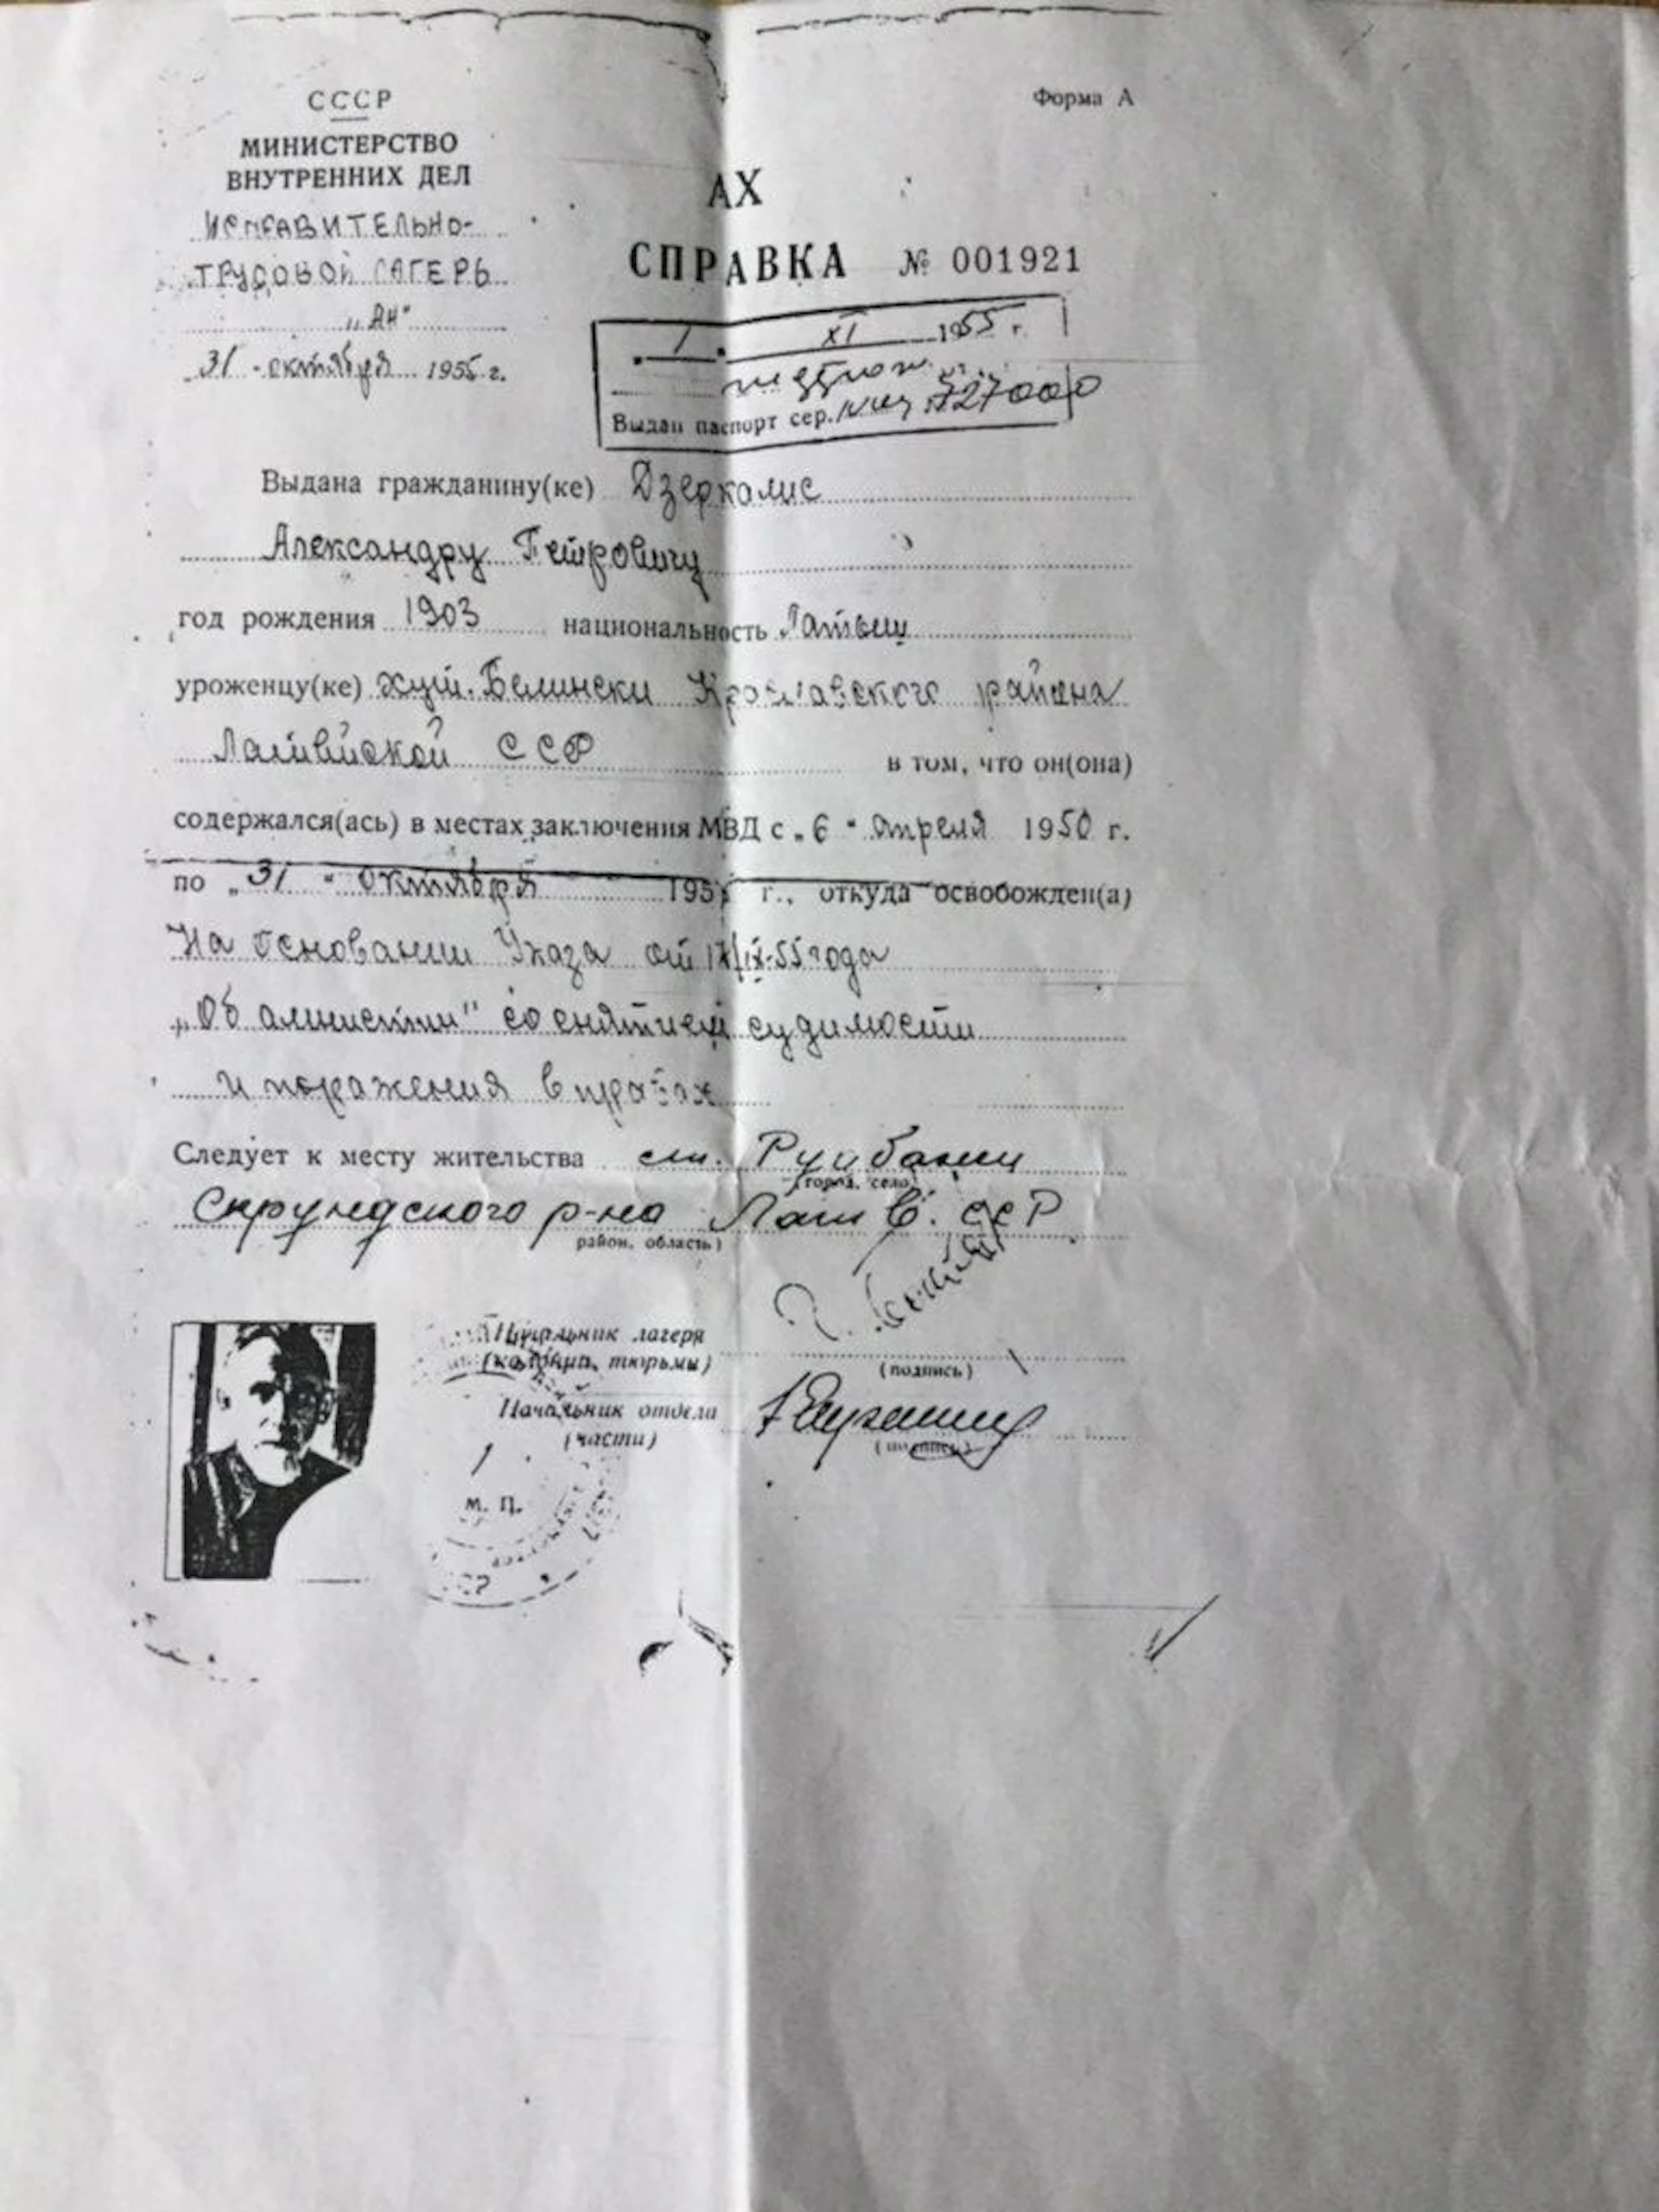 СССР
Форма А
МИНИСТЕРСТВО
ВНУТРЕННИХ ДЕЛ
АХ
ИСПРАВИТЕЛЬНО-
ТРУДОВОЙ ЛАГЕРЬ
СПРАВКА № 001921
„АН"
„31" октября 1955 г.
1 XI 1955 г.
Выдан паспорт сер. 727000
Выдана гражданину(ке) Дзеркалис
Александру Петровичу
год рождения 1903 национальность Латыш
уроженцу(ке) хут. Белински Краславского района
Латвийской ССР в том, что он(она)
содержался(ась) в местах заключения МВД с „6" апреля 1950 г.
по „31" октября 1955 г., откуда освобожден(а)
На основании Указа от 17/IX-55 года
„Об амнистии" со снятием судимости
и поражения в правах
Следует к месту жительства ст. Рудбажи
(город, село)
Скрундского р-на Латв. ССР
район, область)
Начальник лагеря
(колонии, тюрьмы)
(подпись)
Начальник отдела
(части)
(подпись)
М. П.